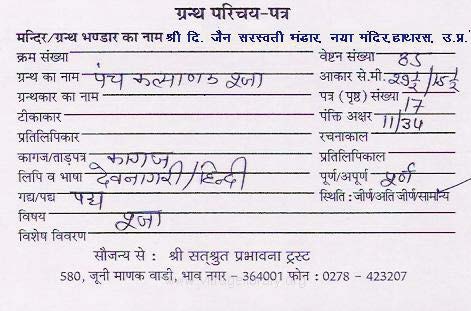 ग्रन्थ परिचय-पत्र
मन्दिर/ग्रन्थ भण्डार का नाम श्री दि. जैन सरस्वती भंडार, नया मंदिर, हाथरस, उ.प्र.
क्रम संख्या वेष्टन संख्या 85
ग्रन्थ का नाम पंच कल्याणक पूजा आकार से.मी. 29½/15½
ग्रन्थकार का नाम पत्र (पृष्ठ) संख्या 17
टीकाकार पंक्ति अक्षर 11/34
प्रतिलिपिकार रचनाकाल
कागज/ताड़पत्र कागज प्रतिलिपिकाल
लिपि व भाषा देवनागरी/हिन्दी पूर्ण/अपूर्ण पूर्ण
गद्य/पद्य पद्य स्थिति : जीर्ण/अति जीर्ण/सामान्य
विषय पूजा
विशेष विवरण
सौजन्य से : श्री सत्श्रुत प्रभावना ट्रस्ट
580, जूनी माणक वाडी, भाव नगर – 364001 फोन : 0278 - 423207